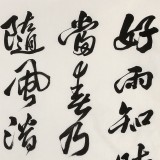 好雨知時
當春乃
隨風潛